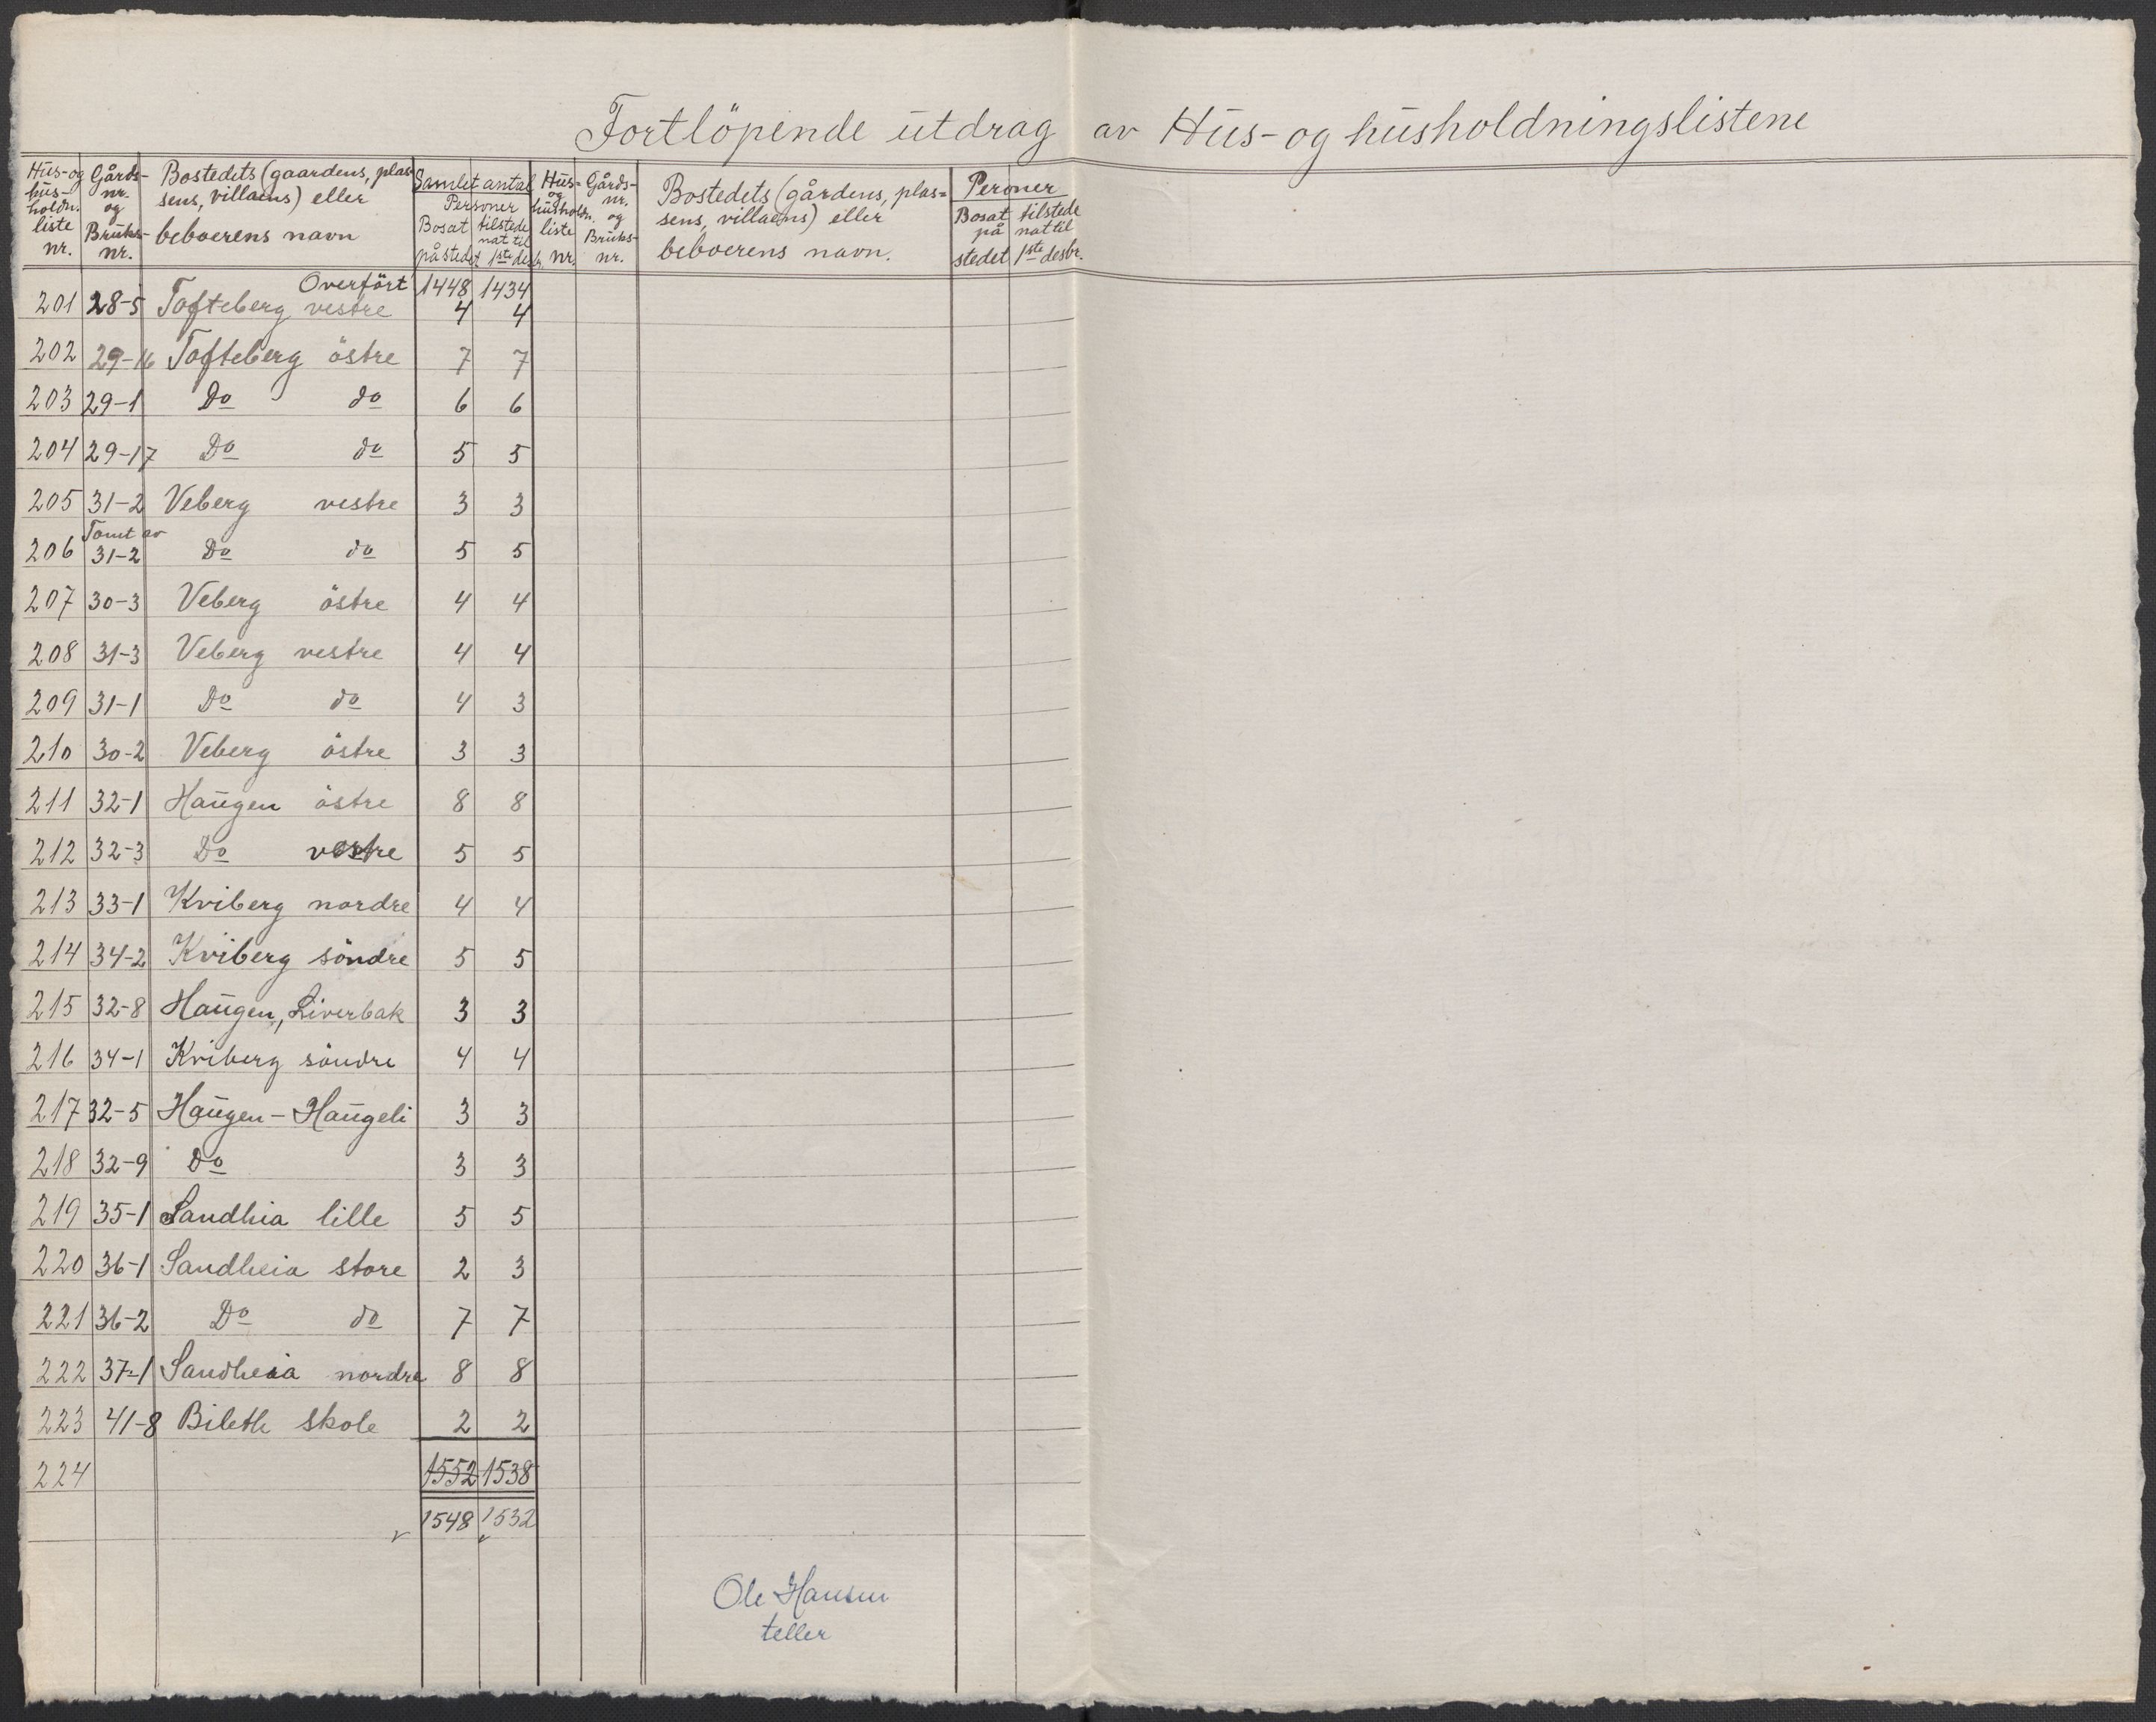 Fortlöpende utdrag av Hus- og husholdningslistene
Hus- og hus-holdn. liste nr.
Gårds-nr. og Bruks-nr.
Bostedets (gaardens, plassens, villaens) eller beboerens navn
Samlet antal Personer
Bosat på stedet
tilstede nat til 1ste desbr.
Hus- og husholdn. liste nr.
Gårds-nr. og Bruks-nr.
Bostedets (gårdens, plas=sens, villaens) eller beboerens navn.
Peroner
Bosat på stedet
tilstede nat til 1ste desbr.
Overfört 1448 1434
201 28-5 Tofteberg vestre 4 4
202 29-16 Tofteberg östre 7 7
203 29-1 Do do 6 6
204 29-17 Do do 5 5
205 31-2 Veberg vestre 3 3
206 Tomt av 31-2 Do do 5 5
207 30-3 Veberg östre 4 4
208 31-3 Veberg vestre 4 4
209 31-1 Do do 4 3
210 30-2 Veberg östre 3 3
211 32-1 Haugen östre 8 8
212 32-3 Do vestre 5 5
213 33-1 Kviberg nordre 4 4
214 34-2 Kviberg söndre 5 5
215 32-8 Haugen, Liverbak 3 3
216 34-1 Kviberg söndre 4 4
217 32-5 Haugen - Haugeli 3 3
218 32-9 Do 3 3
219 35-1 Sandhia lille 5 5
220 36-1 Sandheia store 2 3
221 36-2 Do do 7 7
222 37-1 Sandheia nordre 8 8
223 41-8 Bileth skole 2 2
224 1552 1538
1548 1532
Ole Hansen
teller